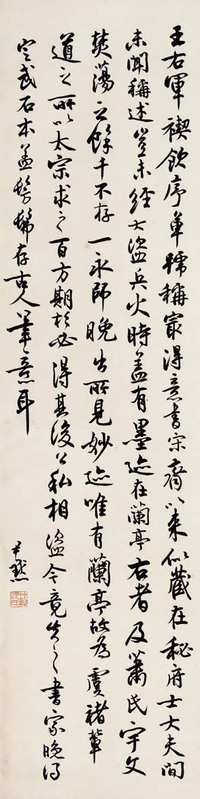 王右軍禊飲序草號稱寂得意書宋齊以來似藏在秘府士大夫間
未聞稱述豈未經大盜兵火時蓋有墨迹在蘭亭右者及蕭氏宇文
焚蕩之餘千不存一永師晚出所見妙迹唯有蘭亭故為虞褚輩
道之所以太宗求之百方期於必得其後公私相盜今竟失之書家晚得
定武石本蓋髣髴存古人筆意耳
尹默